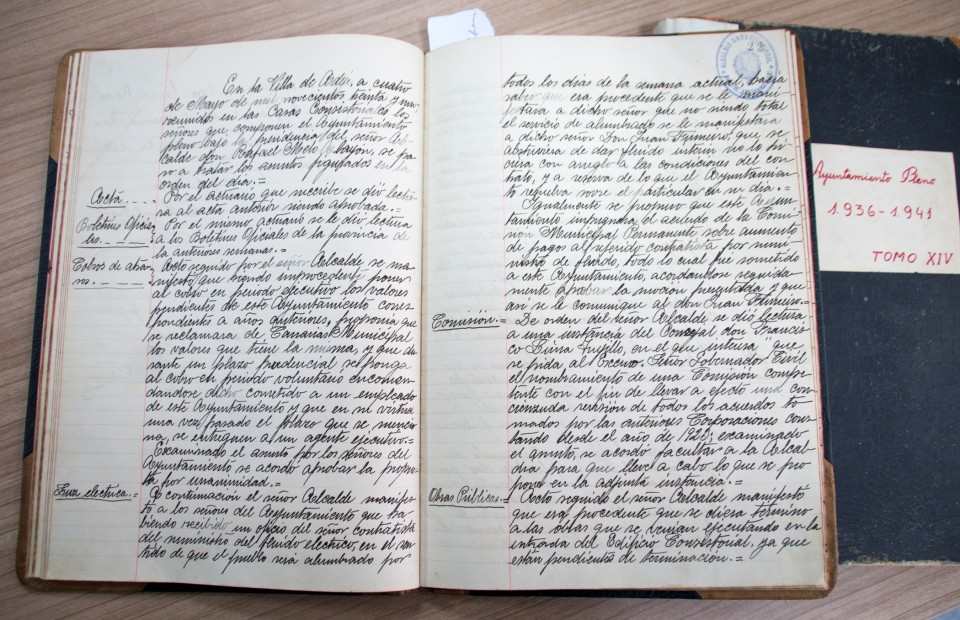 En la Villa de Ardes. a cuatro
de Mayo de mil novecientos treinta y uno
reunidos en las Casas Consistoriales los
señores que componen el Ayuntamiento
pleno bajo la presidencia del señor Al-
calde don Rafael Melo Bayón, se pa-
só a tratar los asuntos figurados en la
orden del día.=
Acta....
Por el actuario que suscribe se dió lectu-
ra al acta anterior siendo aprobada.=
Boletines Oficia-
les.
Por el mismo actuario se le dió lectura
a los Boletines Oficiales de la provincia de
la anteriores semanas.=
Cobros de atra-
sos.
Acto seguido por el señor Alcalde se ma-
nifestó que siendo improcedente poner
al cobro en periodo ejecutivo los valores
pendientes de este Ayuntamiento corres-
pondientes a años anteriores, proponía que
se reclamara de Canarias Municipal
los valores que tiene la misma, y que du-
rante un plazo prudencial se ponga
al cobro en periodo voluntario encomen-
dandose dicho cometido a un empleado
de este Ayuntamiento y que en su virtud
una vez pasado el plazo que se mencio-
na, se entreguen a un agente ejecutivo.=
Examinado el asunto por los señores del
Ayuntamiento se acordó aprobar la propues-
ta por unanimidad.=
Luz electrica.=
A continuación el señor Alcalde manifes-
tó a los señores del Ayuntamiento que ha-
biendo recibido un oficio del señor contratista
del suministro del fluido electrico, en el sen-
tido de que el pueblo sera alumbrado por
todos los dias de la semana actual, hacia
saber que era procedente que se le mani-
festara a dicho señor que no siendo total
el servicio de alumbrado se le manifestara
a dicho señor Don Juan Armeiro, que se
abstuviera de dar fluido interin no lo hi-
ciera con arreglo a las condiciones del con-
trato, y a reserva de lo que el Ayuntamien-
to resuelva sobre el particular en su dia.=
Igualmente se propuso que este Ayun-
tamiento impugnara el acuerdo de la Comi-
sión Municipal Permanente sobre aumento
de pagos al referido contratista por sumi-
nistro de fluido, todo lo cual fué sometido
a este Ayuntamiento, acordandose seguida-
mente aprobar la moción presentada y que
asi se le comunique al don Juan Armeiro.=
Comisión.=
De orden del señor Alcalde se dió lectura
a una instancia del Concejal don Francis-
co Luna Trujillo, en el que interesa que
se pida al Excmo. Señor Gobernador Civil
el nombramiento de una Comisión compe-
tente con el fin de llevar a efecto una con-
cienzuda revisión de todos los acuerdos to-
mados por las anteriores Corporaciones con-
tando desde el año de 1921; examinado
el asunto, se acordó facultar a la Alcal-
dia para que lleve a cabo lo que se pro-
pone en la adjunta instancia.=
Obras Públicas.=
Acto seguido el señor Alcalde manifestó
que era procedente que se diera término
a las obras que se venian ejecutando en la
entrada del Edificio Consistorial, ya que
están pendientes de terminación.=
Ayuntamiento Pleno
1.936-1.941
TOMO XIV